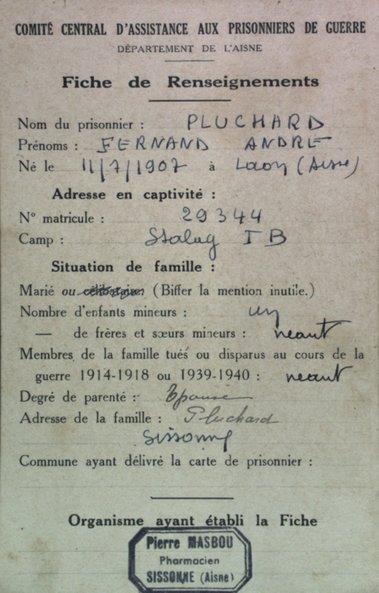 COMITÉ CENTRAL D'ASSISTANCE AUX PRISONNIERS DE GUERRE
DÉPARTEMENT DE L'AISNE
Fiche de Renseignements
Nom du prisonnier : PLUCHARD
Prénoms : FERNAND ANDRE
Né le 11/7/1907 à Laon (Aisne)
Adresse en captivité :
N° matricule : 29344
Camp : Stalag I B
Situation de famille :
Marié ou célibataire (Biffer la mention inutile.)
Nombre d'enfants mineurs : un
— de frères et sœurs mineurs : neant
Membres de la famille tués ou disparus au cours de la
guerre 1914-1918 ou 1939-1940 : neant
Degré de parenté : Epouse
Adresse de la famille : Pluchard
Sissonne
Commune ayant délivré la carte de prisonnier :
Organisme ayant établi la Fiche
Pierre MASBOU
Pharmacien
SISSONNE (Aisne)